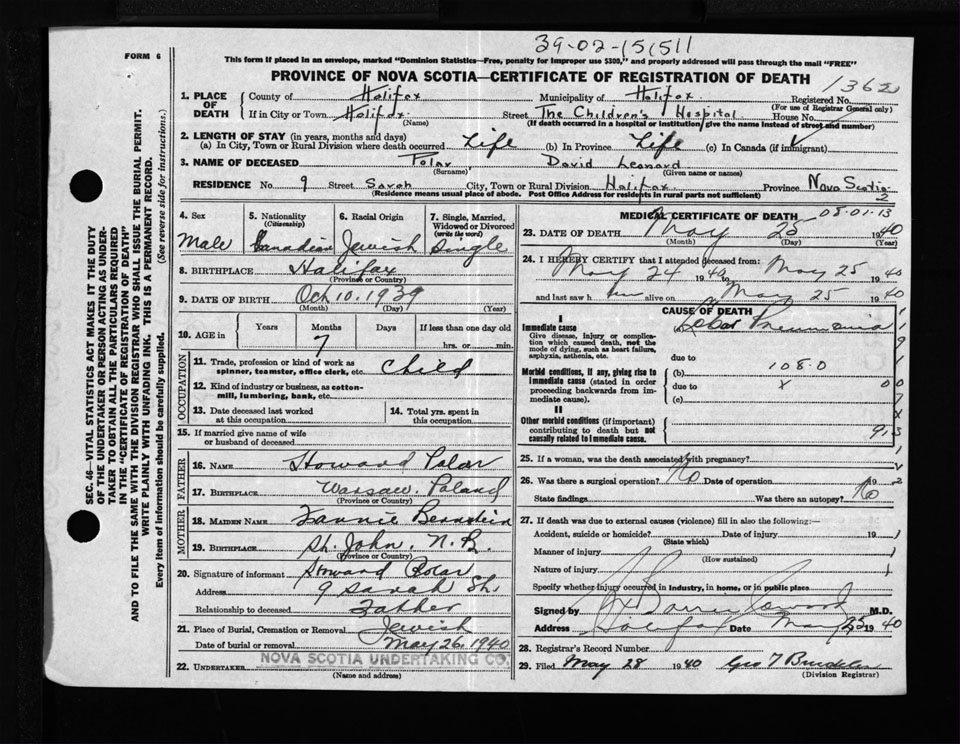 39-02-15(511
FORM 6
This form if placed in an envelope, marked "Dominion Statistics—Free, penalty for improper use $300," and properly addressed will pass through the mail "FREE"
PROVINCE OF NOVA SCOTIA—CERTIFICATE OF REGISTRATION OF DEATH
1362
1. PLACE OF DEATH
County of Halifax Municipality of Halifax Registered No.
(For use of Registrar General only)
If in City or Town Halifax Street The Children's Hospital House No.
(Name) (If death occurred in a hospital or institution, give the name instead of street and number)
2. LENGTH OF STAY (in years, months and days)
(a) In City, Town or Rural Division where death occurred Life (b) In Province Life (c) In Canada (if immigrant)
3. NAME OF DECEASED Polar David Leonard
(Surname) (Given name or names)
RESIDENCE No. 9 Street Sarah City, Town or Rural Division Halifax Province Nova Scotia
(Residence means usual place of abode. Post Office Address for residents in rural parts not sufficient)
2
4. Sex
Male
5. Nationality (Citizenship)
Canadian
6. Racial Origin
Jewish
7. Single, Married, Widowed or Divorced (write the word)
Single
8. BIRTHPLACE Halifax
(Province or Country)
9. DATE OF BIRTH Oct 10, 1939
(Month) (Day) (Year)
10. AGE in
Years Months Days If less than one day old
7
hrs. or min.
OCCUPATION
11. Trade, profession or kind of work as spinner, teamster, office clerk, etc. Child
12. Kind of industry or business, as cotton-mill, lumbering, bank, etc.
13. Date deceased last worked at this occupation
14. Total yrs. spent in this occupation
15. If married give name of wife or husband of deceased
FATHER
16. NAME Howard Polar
17. BIRTHPLACE Warsaw, Poland
(Province or Country)
MOTHER
18. MAIDEN NAME Fannie
19. BIRTHPLACE St. John, N.B.
(Province or Country)
20. Signature of informant Howard Polar
Address 9 Sarah St.
Relationship to deceased Father
21. Place of Burial, Cremation or Removal Jewish
Date of burial or removal May 26 1940
22. UNDERTAKER NOVA SCOTIA UNDERTAKING CO.
(Name and address)
MEDICAL CERTIFICATE OF DEATH
08-01-13
23. DATE OF DEATH May 25 1940
(Month) (Day) (Year)
24. I HEREBY CERTIFY that I attended deceased from:
May 24 1940 to May 25 1940
and last saw him alive on May 25 1940
CAUSE OF DEATH
I
Immediate cause
Give disease, injury or complication which caused death, not the mode of dying, such as heart failure, asphyxia, asthenia, etc.
Lobar Pneumonia
due to
Morbid conditions, if any, giving rise to immediate cause (stated in order proceeding backwards from immediate cause).
(b) 108.0
due to x
(c)
II
Other morbid conditions (if important) contributing to death but not causally related to immediate cause.
25. If a woman, was the death associated with pregnancy?
26. Was there a surgical operation? No Date of operation 19
State findings Was there an autopsy? No
27. If death was due to external causes (violence) fill in also the following:
Accident, suicide or homicide? Date of injury 19
(State which)
Manner of injury
(How sustained)
Nature of injury
Specify whether injury occurred in industry, in home, or in public place
Signed by M.D.
Address Halifax Date May 25 1940
28. Registrar's Record Number
29. Filed May 28 1940 Geo T
(Division Registrar)
SEC. 46—VITAL STATISTICS ACT MAKES IT THE DUTY
OF THE UNDERTAKER OR PERSON ACTING AS UNDER-
TAKER TO OBTAIN ALL THE PARTICULARS REQUIRED
IN THE "CERTIFICATE OF REGISTRATION OF DEATH"
AND TO FILE THE SAME WITH THE DIVISION REGISTRAR WHO SHALL ISSUE THE BURIAL PERMIT.
WRITE PLAINLY WITH UNFADING INK. THIS IS A PERMANENT RECORD.
Every item of information should be carefully supplied. (See reverse side for instructions.)